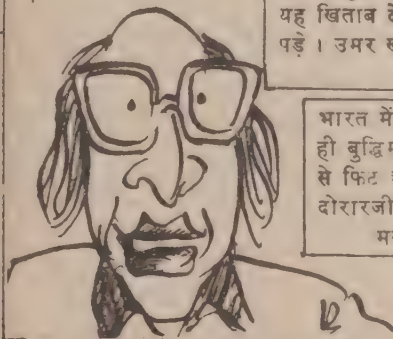 यह खिताब
पड़े । उमर
भारत में
ही बुद्धिम
से फिट
दोरारजी